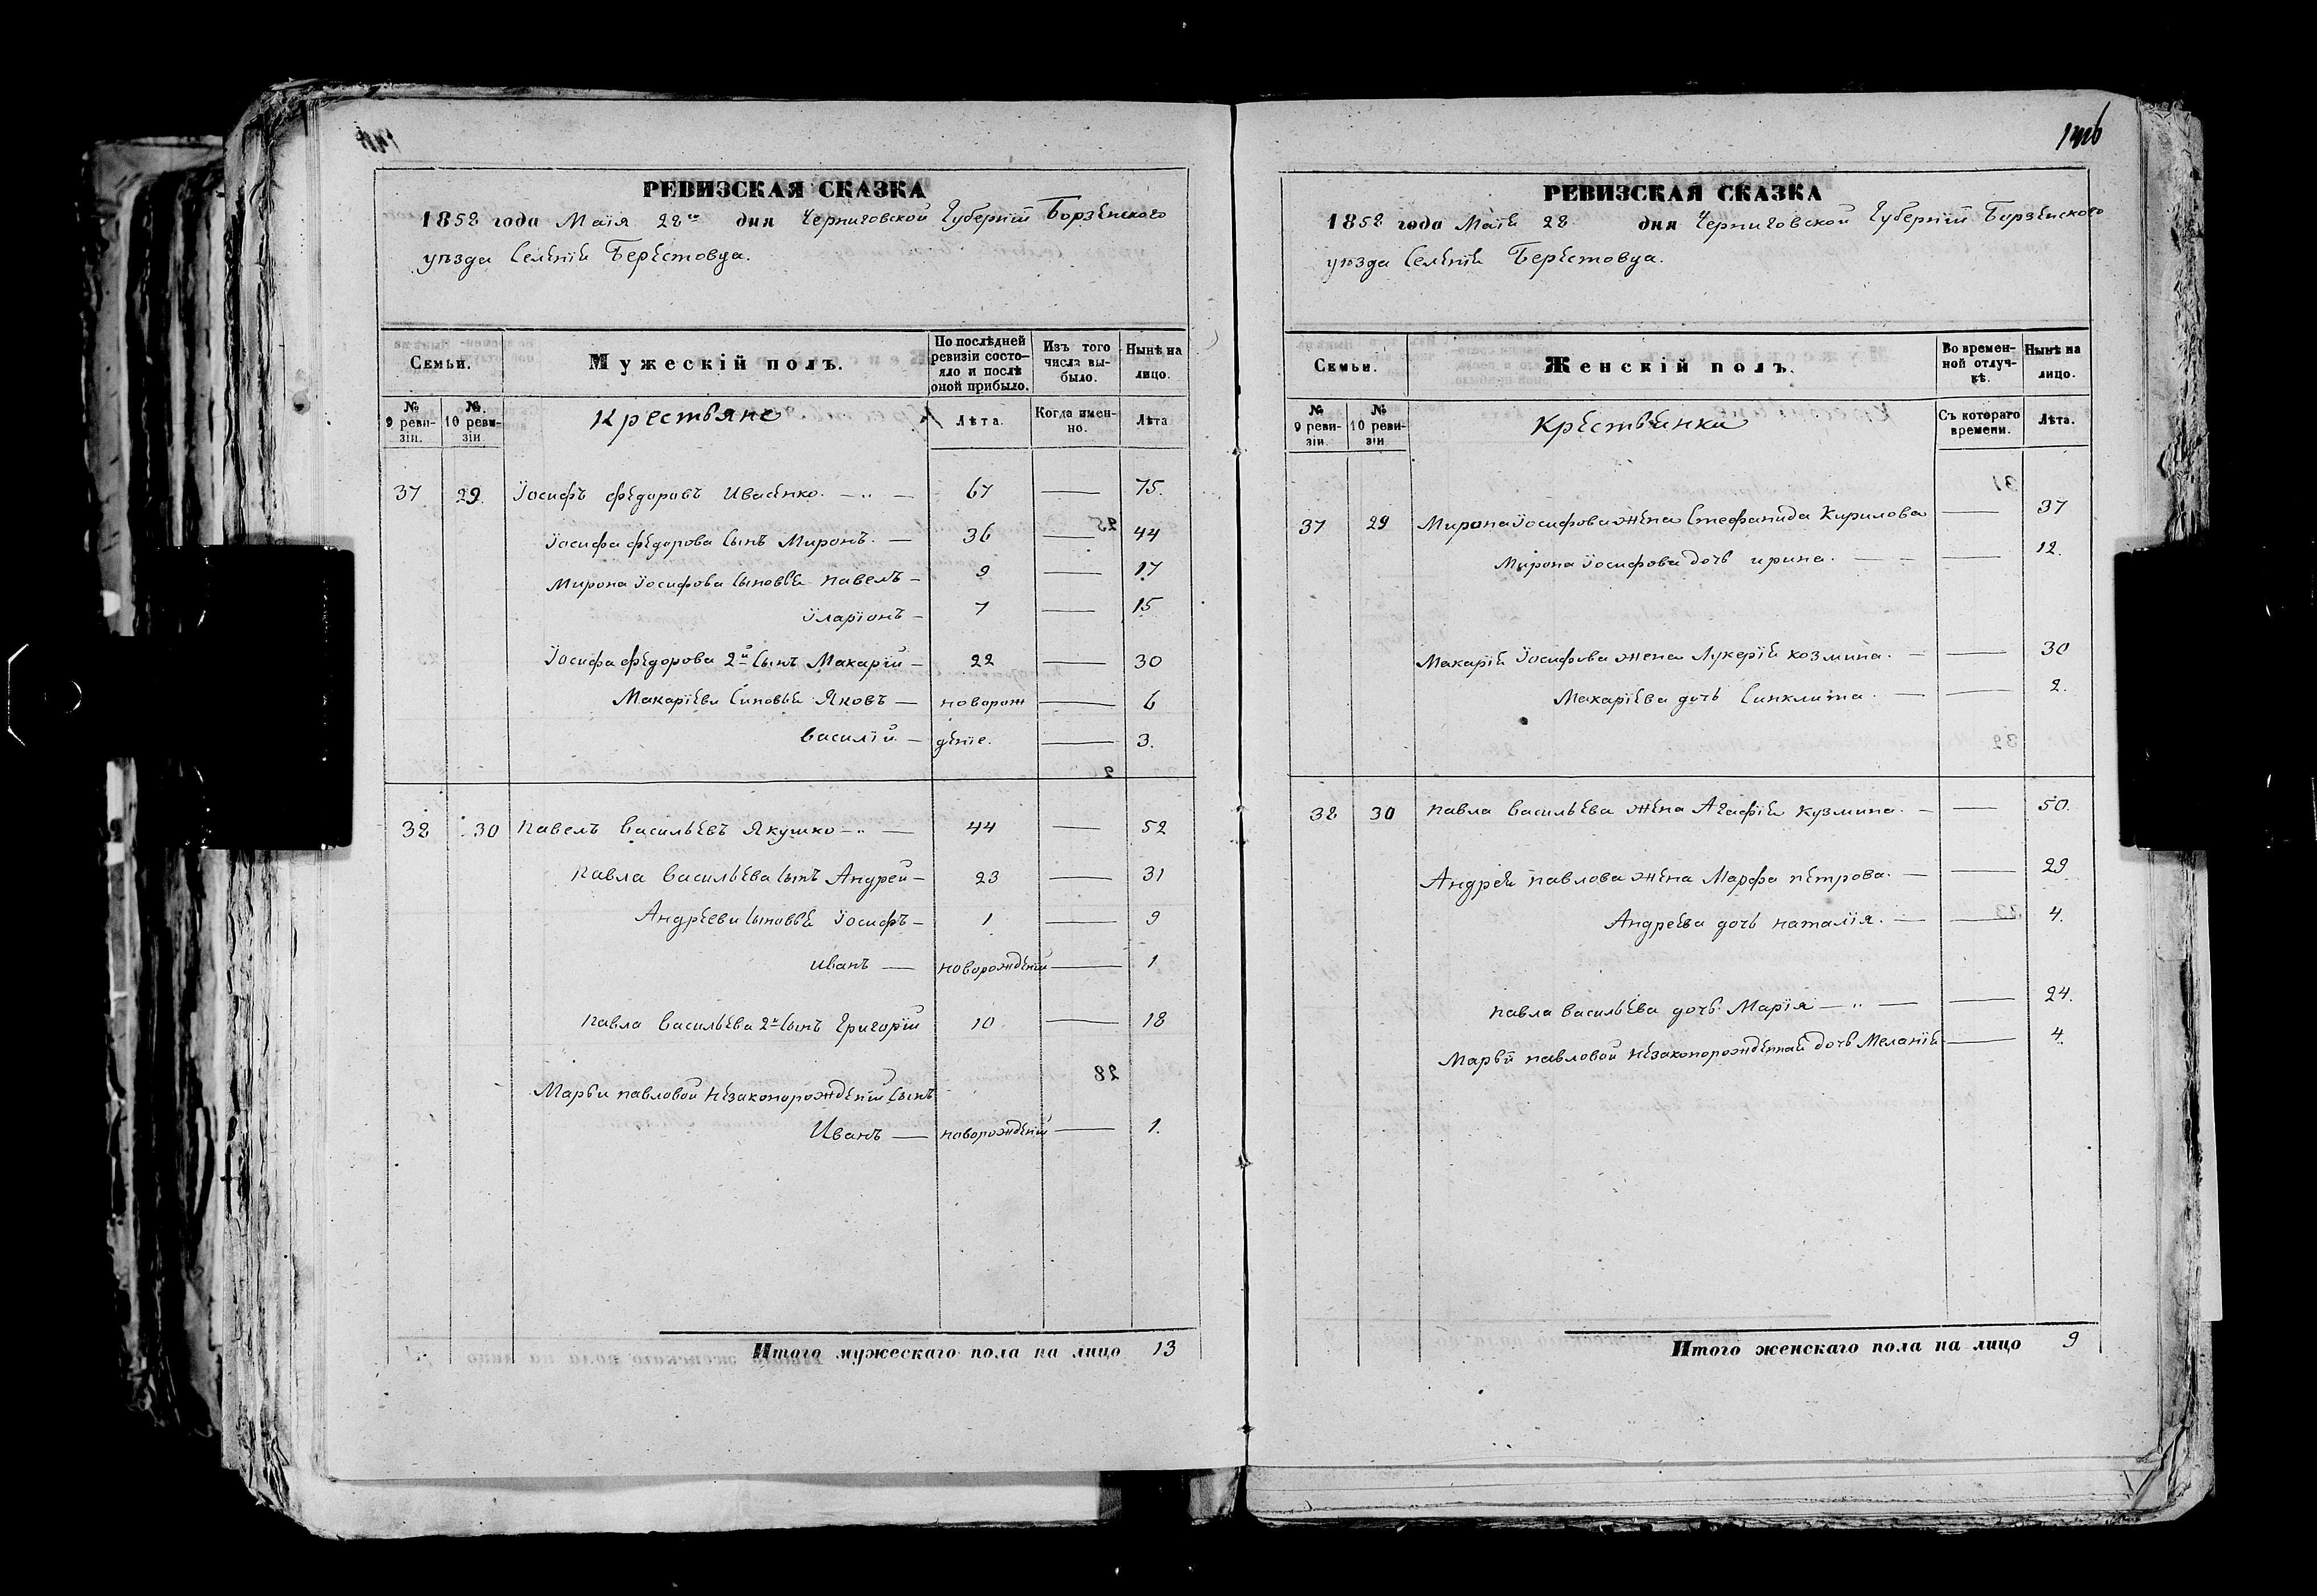 РЕВИЗСКАЯ СКАЗКА
1858 года Маія 28 дня Черниговской Губерніи Борзенского
уѣзда Селенія Берестовца.
Семьи.
Мужескій полъ.
По послѣдней ревизіи состояло и послѣ оной прибыло.
Изъ того числа выбыло.
Нынѣ на лицо.
№ 9 ревизіи.
№. 10 ревизіи
Крестьяне
Лѣта.
Когда именно.
Лѣта
37 29. Іосифъ Федоровъ Ивасенко. 67 — 75.
Іосифа Федорова сынъ Миронъ. — 36 — 44
Мирона Іосифова сыновья Павелъ — 9 — 17
Іларіонъ — 7 — 15
Іосифа Федорова 2й сынъ Макарій — 22 — 30
Макаріева синовья Яковъ — новорож — 6
Василій — деніе. — 3.
38 30 Павелъ Васильевъ Якушко — 44 — 52
Павла Васильева сынъ Андрей — 23 — 31
Андреева сыновья Іосифъ — 1 — 9
Иванъ — новорожденій — 1
Павла Васильева 2й сынъ Григорій 10 — 18
Марьи Павловой незаконорожденій сынъ
Иванъ — новорожденій — 1.
Итого мужескаго пола на лицо 13
РЕВИЗСКАЯ СКАЗКА
1858 года Маія 28 дня Черниговской Губерніи Борзенского
уѣзда Селенія Берестовца.
Семьи.
Женскій полъ.
Во временной отлучкѣ.
Нынѣ на лицо.
№ 9 ревизіи.
№ 10 ревизіи
Крестьянки
Съ котораго времени.
Лѣта.
37 29 Мирона Іосифова жена Стефанида Кирилова — 37
Мирона Іосифова дочь Ирина. — 12.
Макарія Іосифова жена Лукерія Козмина. — 30
Макаріева дочь Синклита. — 2.
38 30 Павла Васильева жена Агафія Кузмина. — 50.
Андрея Павлова жена Марфа Петрова. — 29
Андреева дочь Наталія. — 4.
Павла Васильева дочь Марія — 24.
Марьи Павловой незаконорожденная дочь Меланія — 4.
Итого женскаго пола на лицо 9